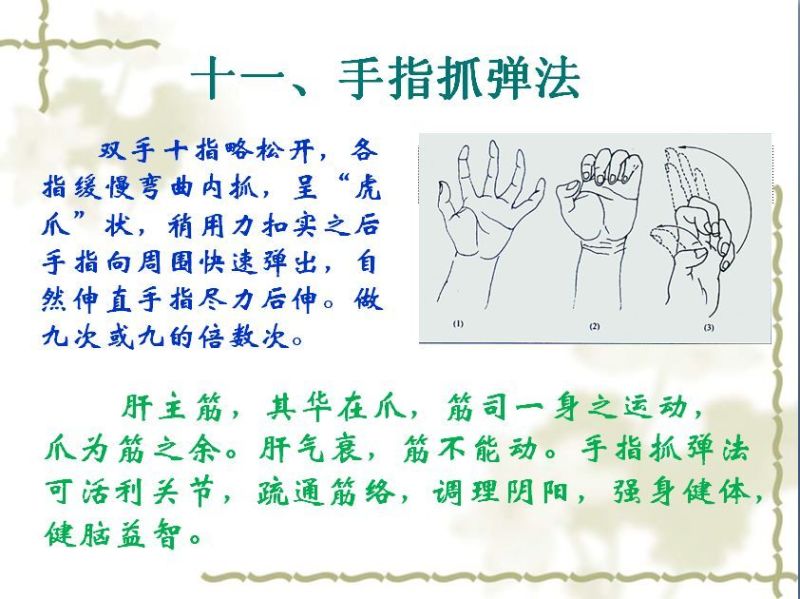 十一、手指抓弹法
双手十指略松开，各
指缓慢弯曲内抓，呈“虎
爪”状，稍用力扣实之后
手指向周围快速弹出，自
然伸直手指尽力后伸。做
九次或九的倍数次。
(1)
(2)
(3)
肝主筋，其华在爪，筋司一身之运动，
爪为筋之余。肝气衰，筋不能动。手指抓弹法
可活利关节，疏通筋络，调理阴阳，强身健体，
健脑益智。